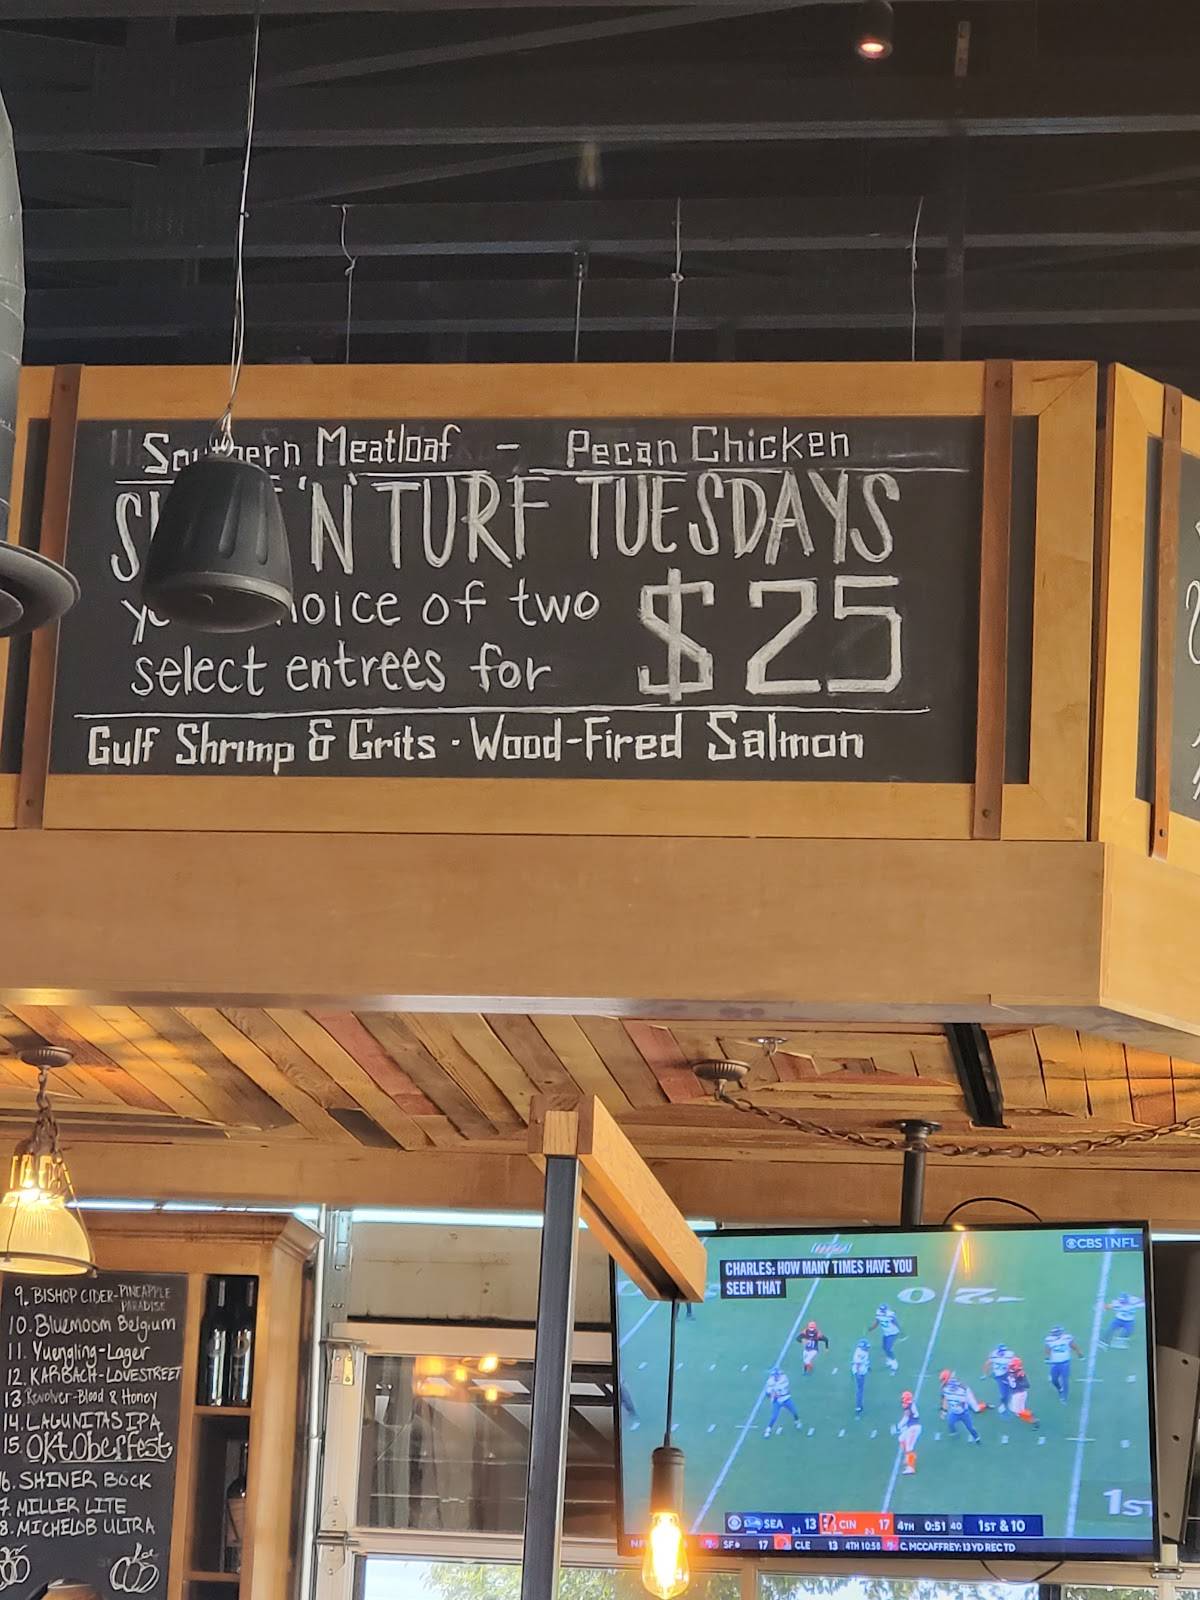 Southern Meatloaf - Pecan Chicken
'N' TURF TUESDAYS
choice of two
select entrees for
$25
Gulf Shrimp & Grits · Wood-Fired Salmon
9. BISHOP CIDER-PINEAPPLE
PARADISE
10. Bluemoom Belgium
11. Yuengling-Lager
12. KARBACH-LOVESTREET
13. Revolver-Blood & Honey
14. LAGUNITAS IPA
15. OKtOberfest
6. SHINER BOCK
7. MILLER LITE
8. MICHELOB ULTRA
CBS | NFL
CHARLES: HOW MANY TIMES HAVE YOU
SEEN THAT
20
1ST
SEA 13 CIN 17 4TH 0:51 40 1ST & 10
3-1 2-3
SF 17 CLE 13 4TH 10:58 C. MCCAFFREY: 13 YD REC TD